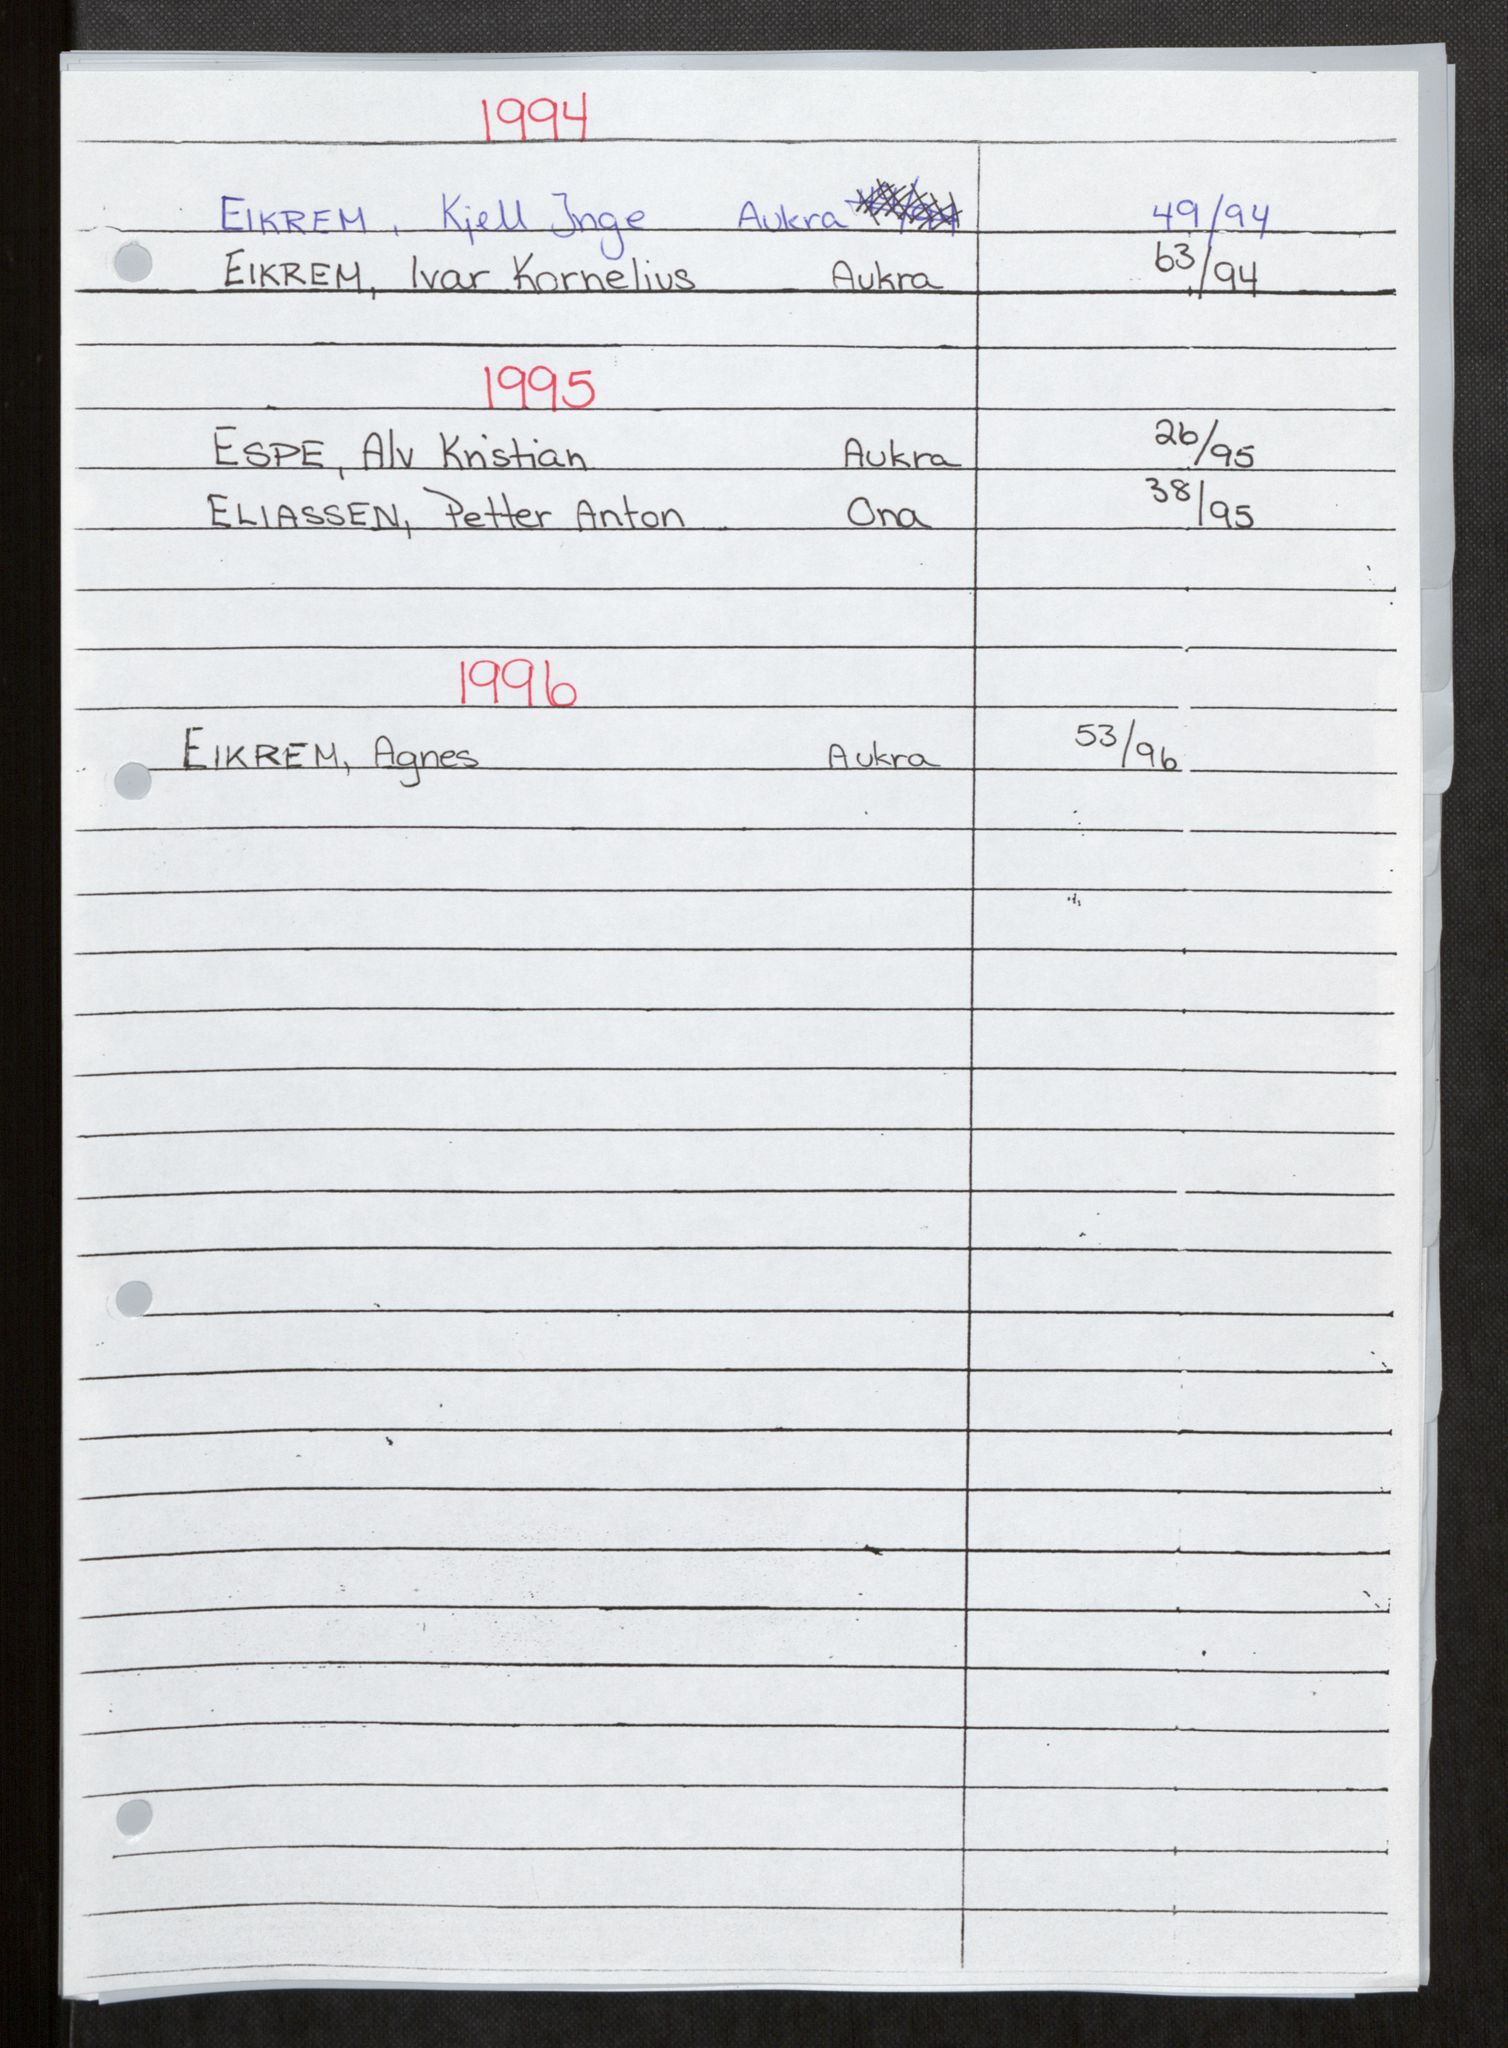 1994
EIKREM, Kjell Inge Aukra 49/94
EIKREM, Ivar Kornelius Aukra 63/94
1995
ESPE, Alv Kristian Aukra 26/95
ELIASSEN, Petter Anton Ona 38/95
1996
EIKREM, Agnes Aukra 53/96